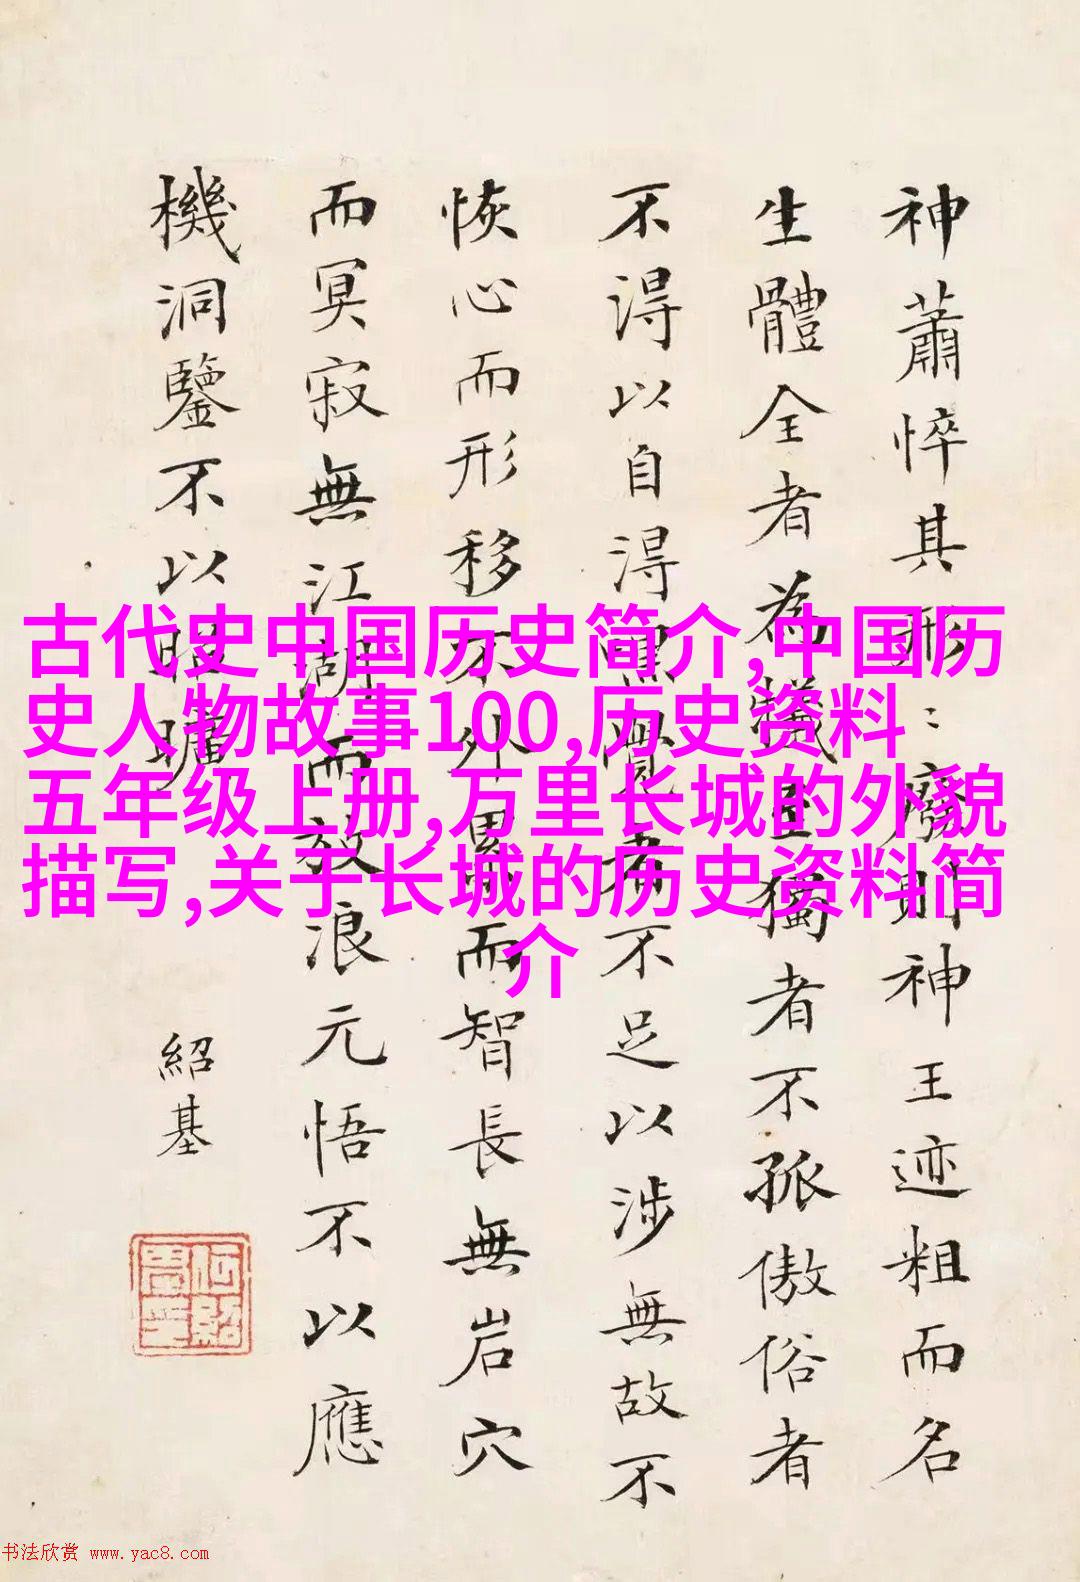 古代史中国历史简介,中国历
史人物故事100,历史资料
五年级上册,万里长城的外貌
描写,关于长城的历史资料简
介
神蕭悴其形::廢則神王迹粗而名
生體全者為犧生獨者不孤傲俗者
不淂以自淂默覽者不足以涉無故不
恢心而形移不外累而智長無岩穴
而冥寂無江湖而放浪元悟不以應
機洞鑒不以昭曠
紹基
书法欣赏 www.yac8.com